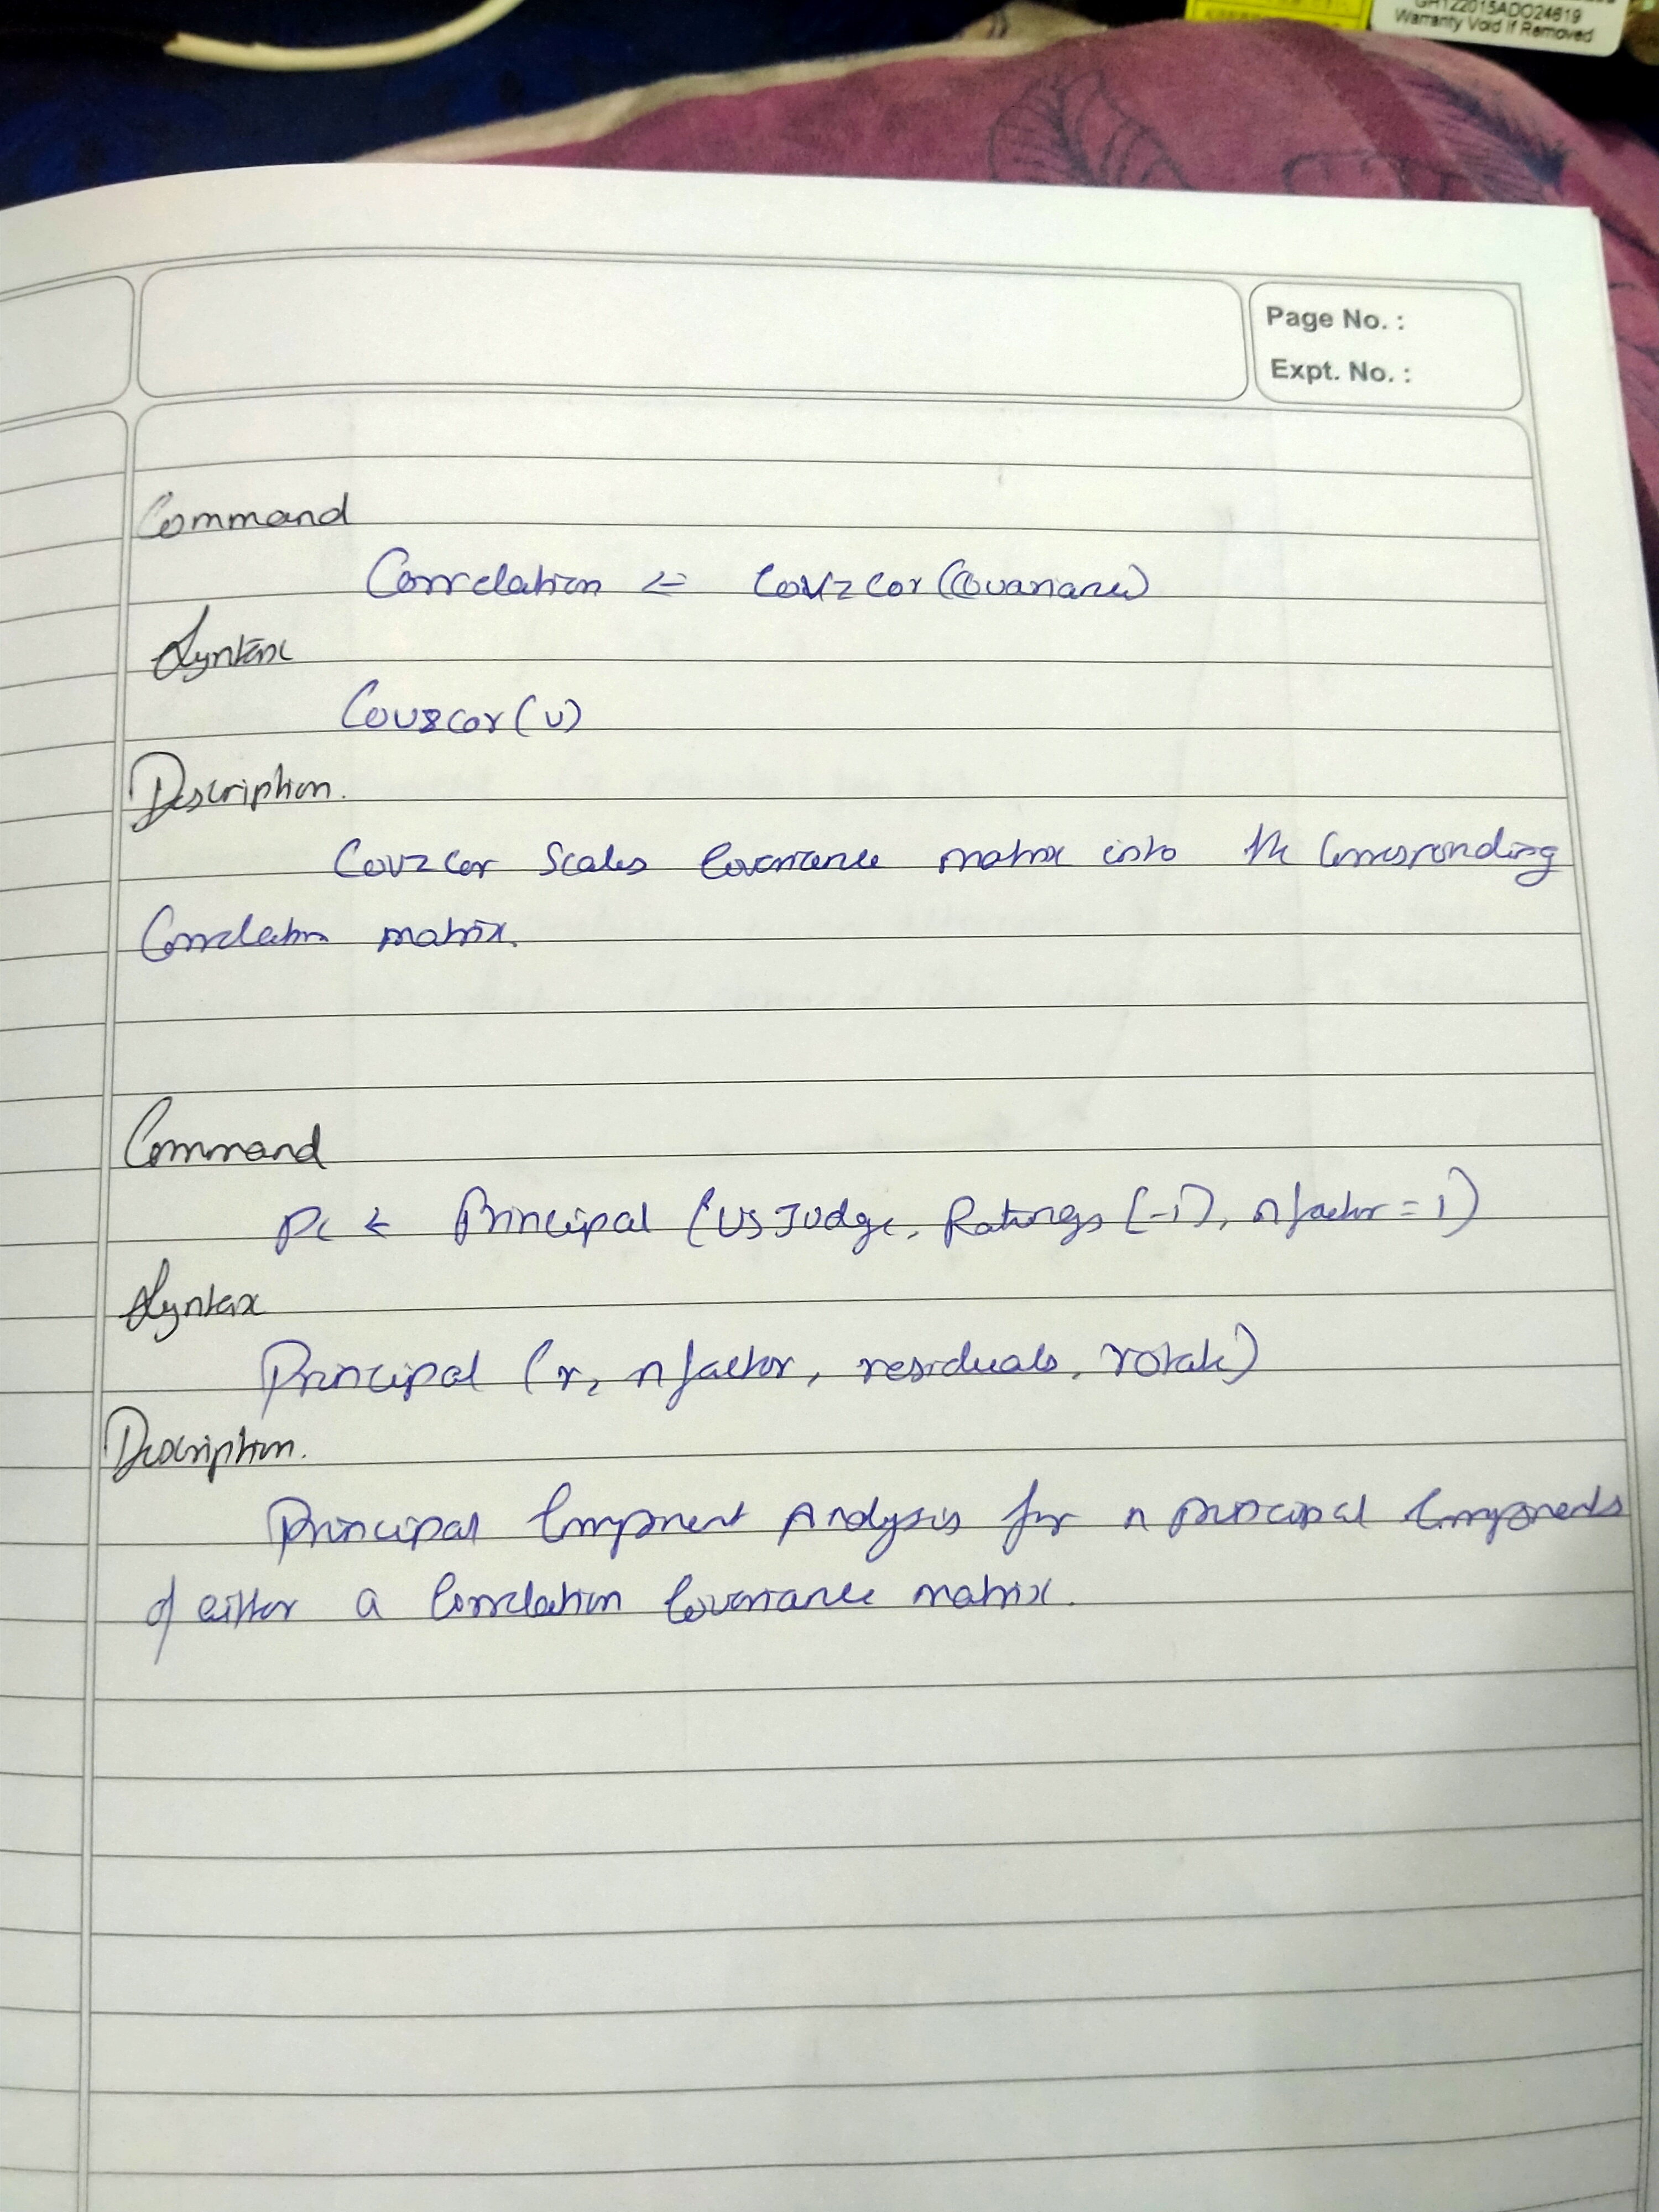 GH122015ADO24619
Warranty Void If Removed
Page No. :
Expt. No. :
Command
Correlation <= Cov2cor (Covariance)
Syntax
Cov2cor (v)
Description.
Cov2cor Scales Covariance matrix into the Corresponding
Correlation matrix.
Command
Pc ← Principal (US Judge, Ratings [-1], nfactor = 1)
Syntax
Principal (r, nfactor, residuals, rotate)
Description.
Principal Component Analysis for n principal Components
of either a Correlation Covariance matrix.